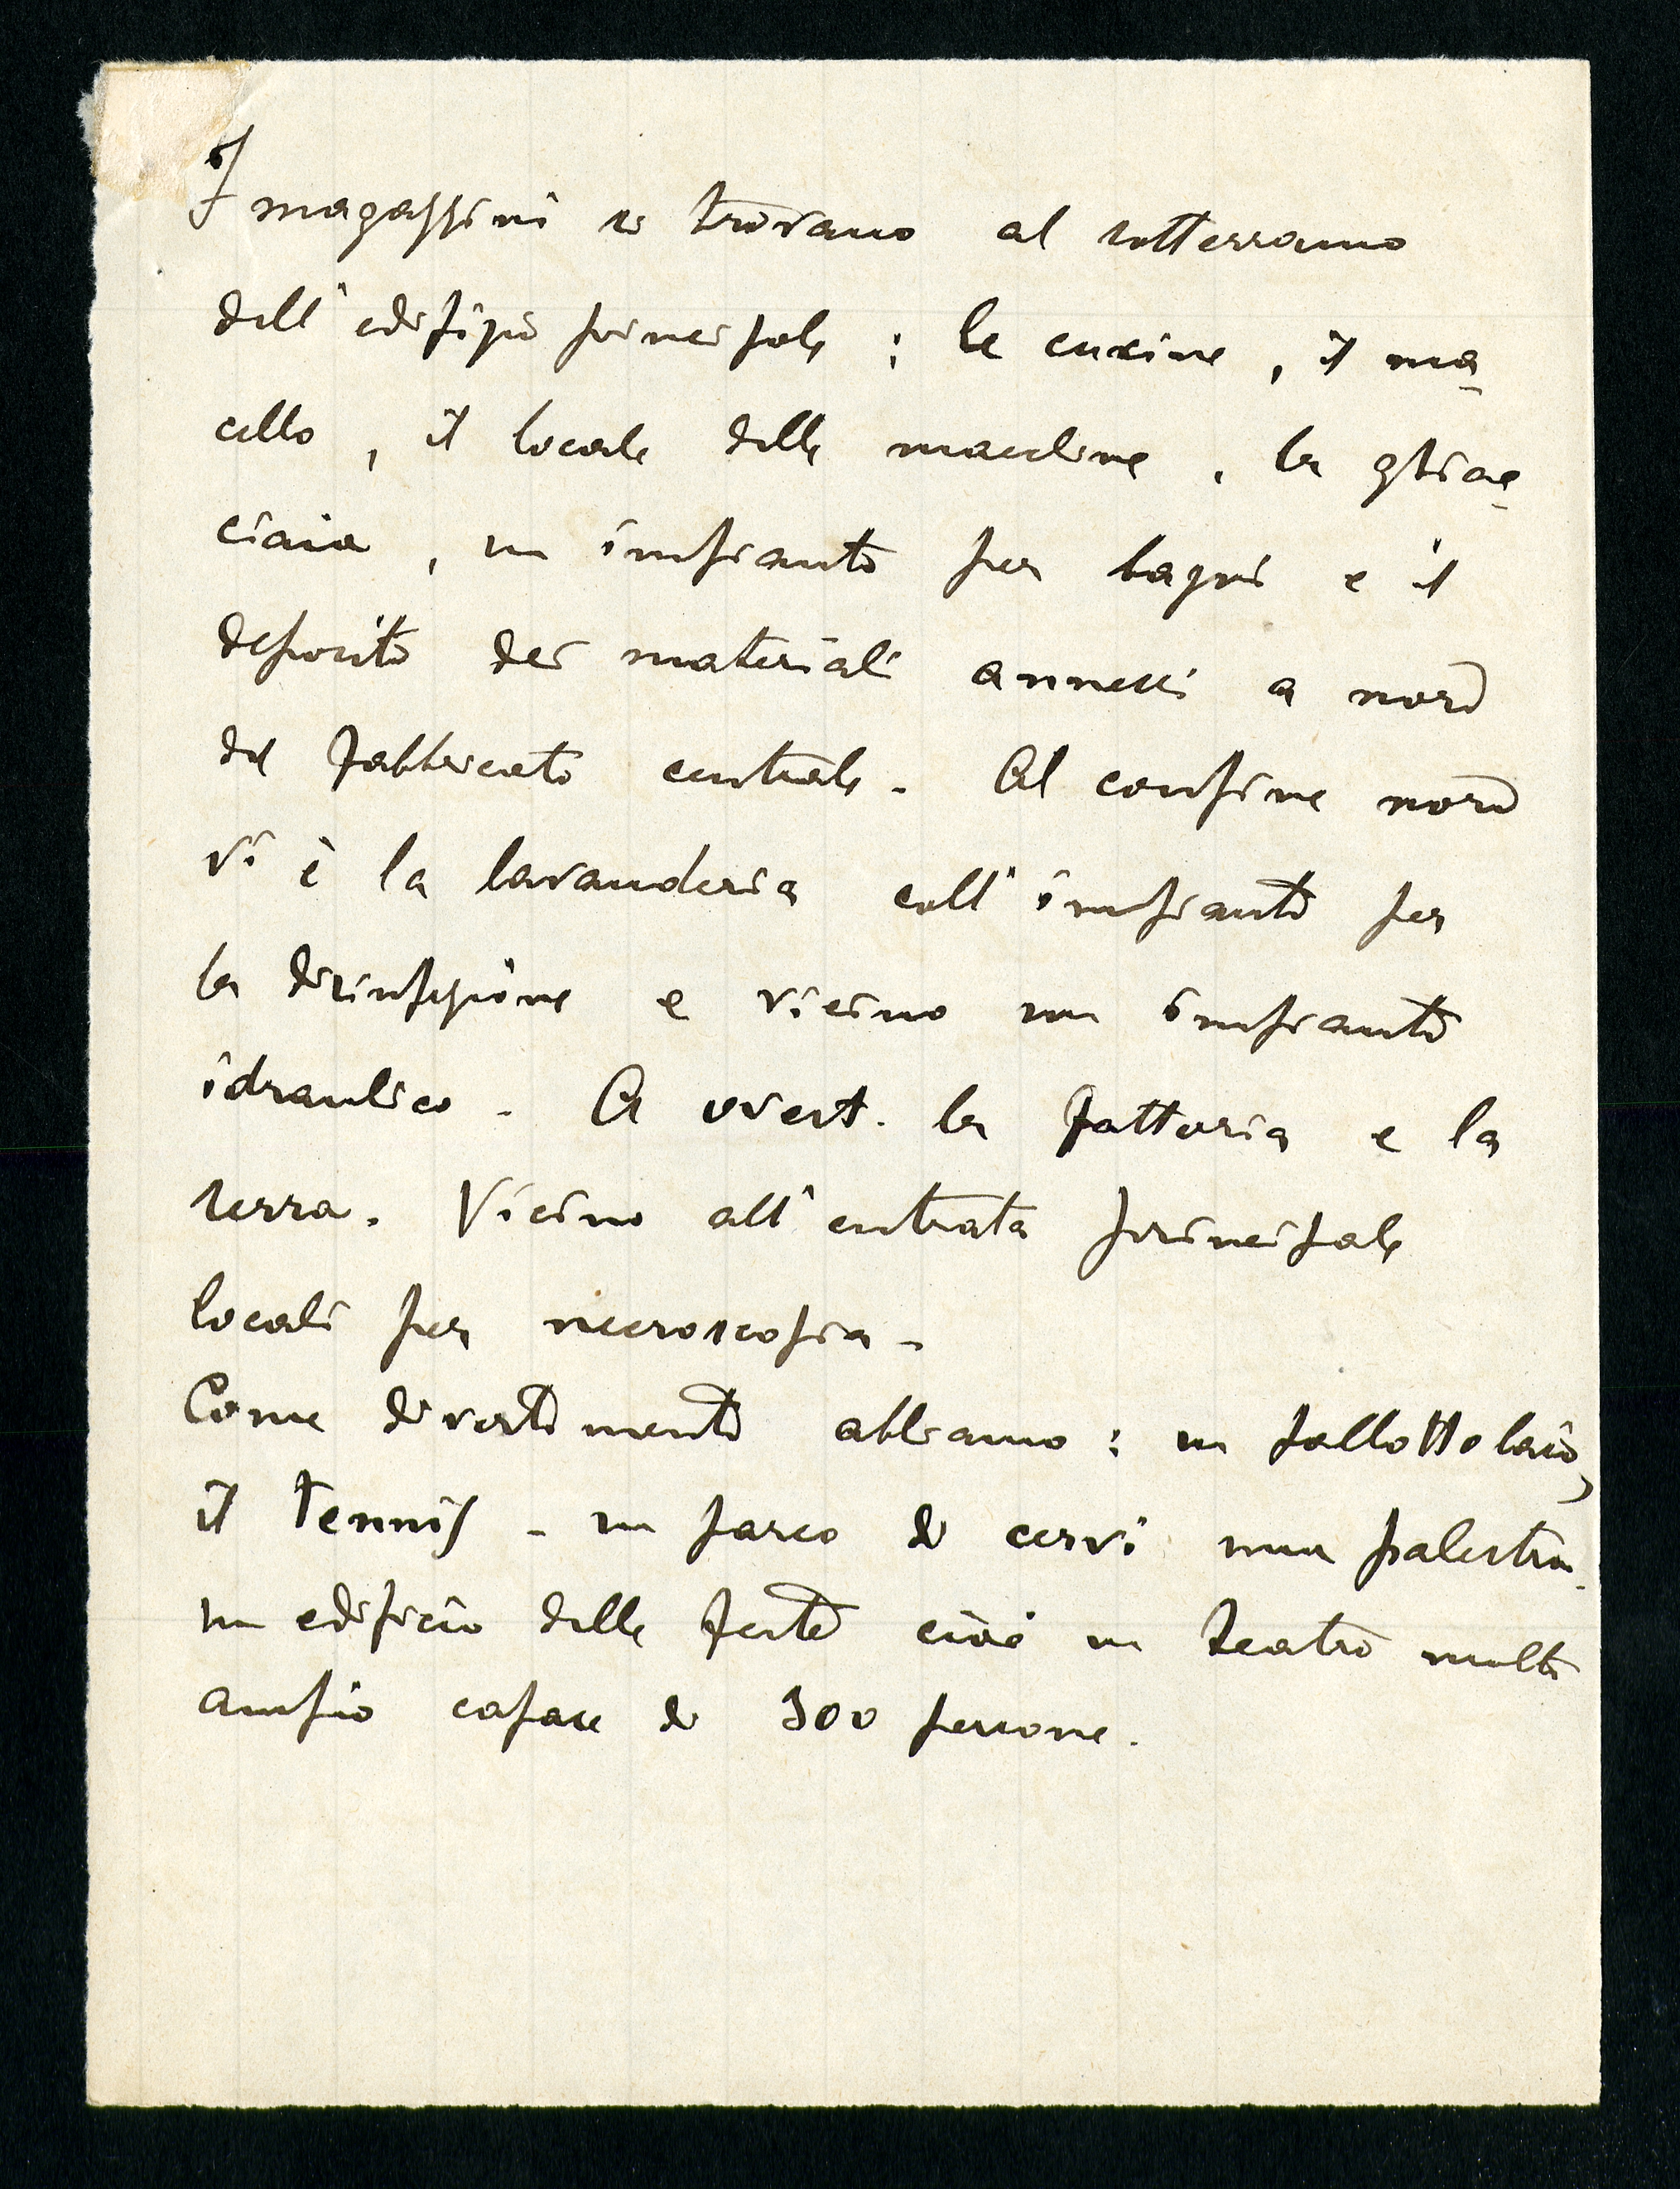 I magazzini si trovano al sotterrano
dell'edifizio principale: le cucine, il ma-
cello, il locale delle macchine, la ghiac-
ciaia, un impianto per bagni e il
deposito dei materiali annessi a nord
del fabbricato centrale. Al confine nord
vi è la lavanderia coll'impianto per
la disinfezione e vicino un impianto
idraulico. A ovest. la fattoria e la
serra. Vicino all'entrata principale
locali per necroscopia.
Come divertimento abbiamo: un pallottolaio,
il Tennis - un parco di cervi una palestra.
un edificio delle feste cioè un teatro molto
ampio capace di 300 persone.